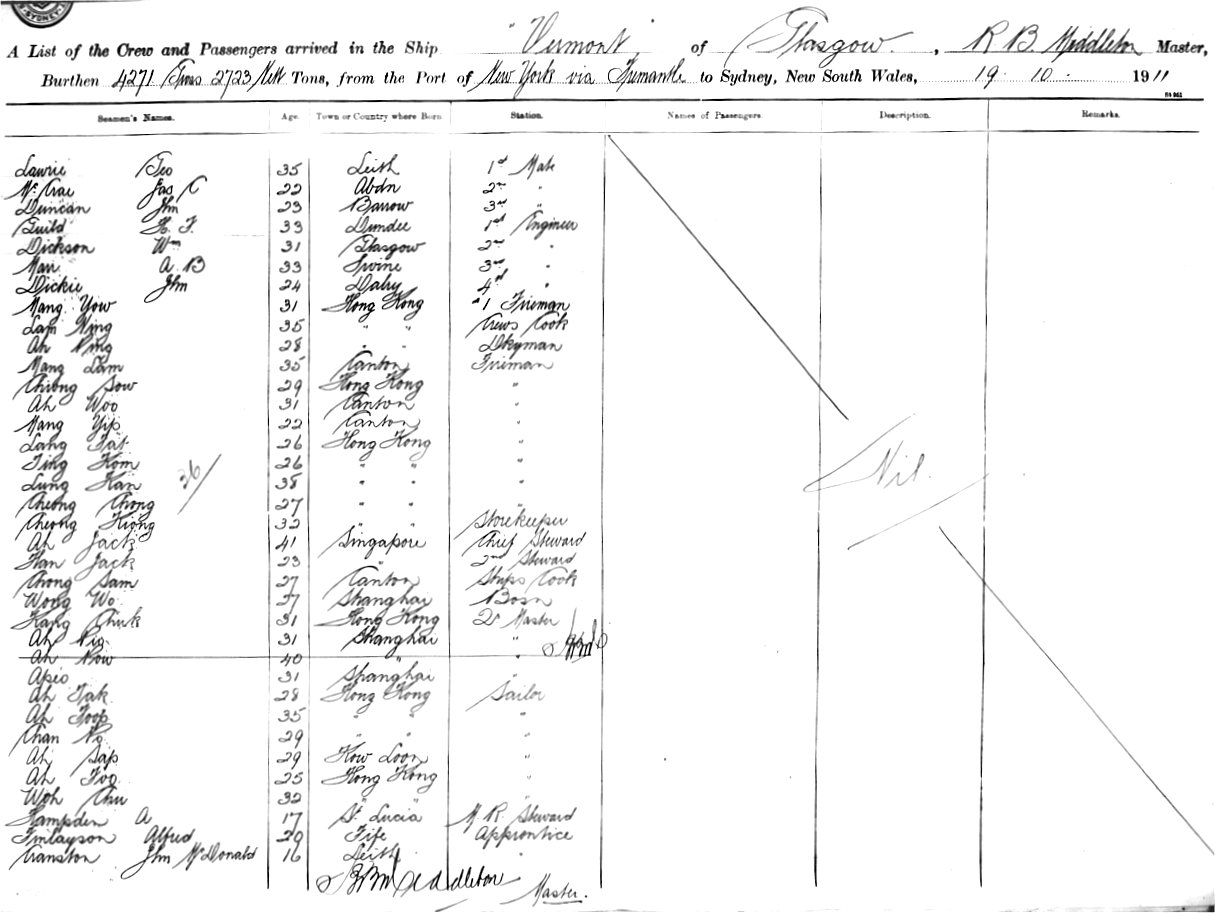 SYDNEY
A List of the Crew and Passengers arrived in the Ship "Vermont" of Glasgow, R B Middleton Master,
Burthen 4271 Gross 2723 Nett Tons, from the Port of New York via Fremantle to Sydney, New South Wales, 19 10 1911
Seamen's Names. Age. Town or Country where Born Station. Names of Passengers Description. Remarks.
Lawrie Geo 35 Leith 1st Mate
McCrae Jas C 22 Abdn 2nd "
Duncan Jhn 23 Barrow 3rd "
Guild H. F. 33 Dundee 1st Engineer
Dickson Wm 31 Glasgow 2nd "
Marr A B 33 Irvine 3rd "
Dickie Jhn 24 Dalry 4th "
Mang Yow 31 Hong Kong "1 Fireman
Lam Ning 35 " " Crews Cook
Ah Ning 28 " " Dkyman
Mang Lam 35 Canton Fireman
Chiong Sow 29 Hong Kong "
Ah Woo 31 Canton "
Mang Yip 22 Canton "
Lang Fat 26 Hong Kong "
Ting Kom 26 " " "
Lung Kan 38 " " "
36/
Cheong Chong 27 " " "
Cheong Kiong 32 " " Storekeeper
Ah Jack 41 Singapore Chief Steward
Han Jack 23 " 2nd Steward
Chong Sam 27 Canton Ships Cook
Wong Wo 27 Shanghai Bosn
Kang Chuk 31 Hong Kong Qr Master
Ah Nig 31 Shanghai "
Ah Now 40 " "
Apio 31 Shanghai "
Ah Fak 28 Hong Kong Sailor
Ah Foop 35 " " "
Chan Ng 29 " " "
Ah Sap 29 Kow Loon "
Ah Fog 25 Hong Kong "
Woh Chu 32 " " "
Hampden A 17 St Lucia M R Steward
Finlayson Alfred 20 Fife Apprentice
Cranston Jhn McDonald 16 Leith "
Nil.
R B Middleton Master.